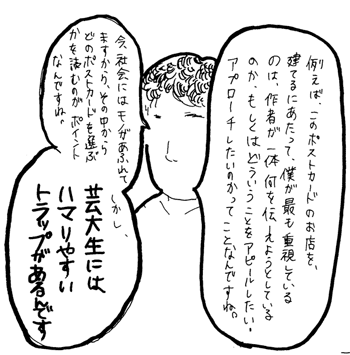 例えば、このポストカードのお店を、
建てるにあたって、僕が最も重視している
のは、作者が一体何を伝えようとしている
のか、もしくはどういうことをアピールしたい、
アプローチしたいのかってことなんですね。
今、社会にはモノがあふれて
ますから、その中から
どのポストカードを選ぶ
かを読むのがポイント
なんですね。
しかし、
芸大生には
ハマりやすい
トラップがあるんです